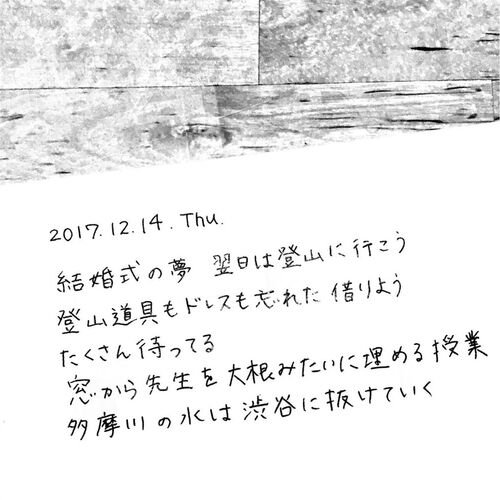 2017.12.14.Thu.
結婚式の夢 翌日は登山に行こう
登山道具もドレスも忘れた 借りよう
たくさん待ってる
窓から先生を大根みたいに埋める授業
多摩川の水は渋谷に抜けていく